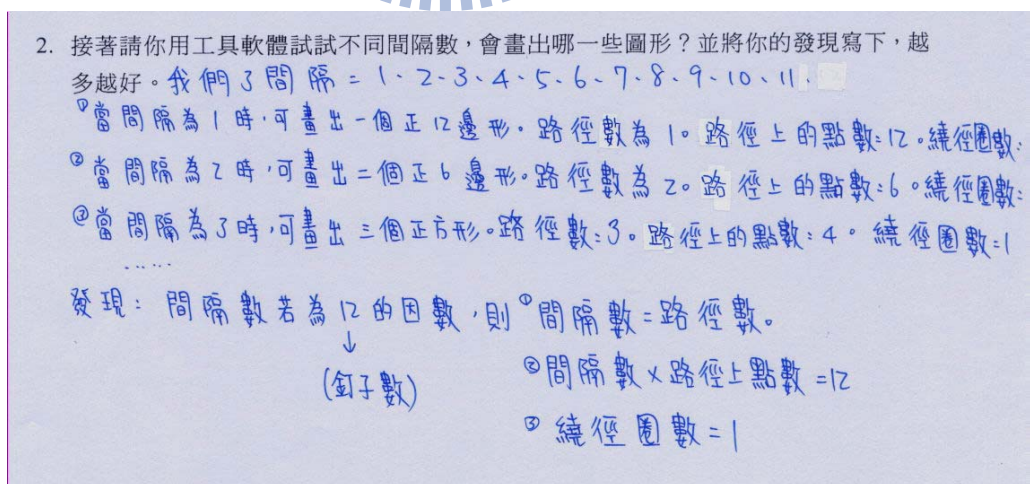 2. 接著請你用工具軟體試試不同間隔數,會畫出哪一些圖形?並將你的發現寫下,越
多越好。我們了間隔=1、2、3、4、5、6、7、8、9、10、11、
①當間隔為1時,可畫出一個正12邊形。路徑數為1。路徑上的點數:12。繞徑圈數:
②當間隔為2時,可畫出二個正6邊形。路徑數為2。路徑上的點數:6。繞徑圈數:
③當間隔為3時,可畫出三個正方形。路徑數:3。路徑上的點數:4。繞徑圈數=1
……
發現:間隔數若為12的因數,則①間隔數=路徑數。
↓
(釘子數)
②間隔數×路徑上點數=12
③繞徑圈數=1